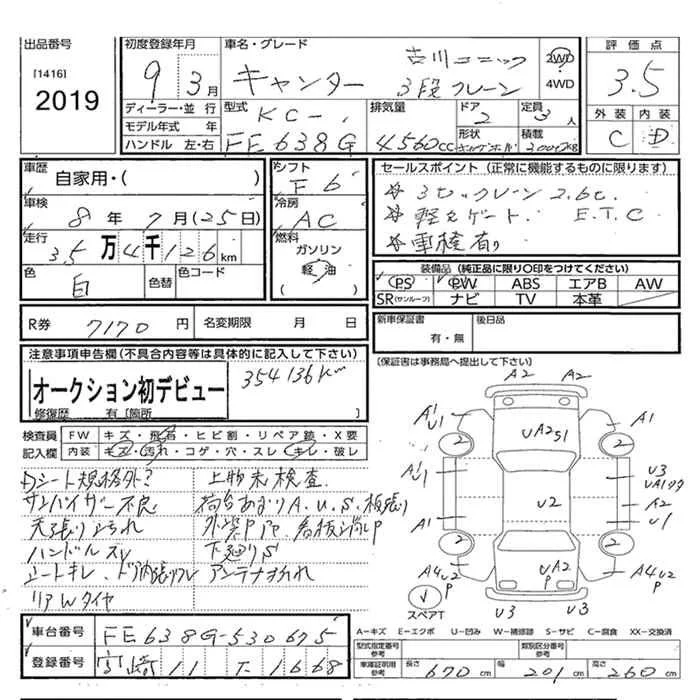 出品番号
[1416]
2019
初度登録年月
9 3月
ディーラー・並 行
モデル年式 年
ハンドル 左・右
車名・グレード
古川ユニック
キャンター 3段クレーン
2WD
4WD
型式
KC-
FE638G
排気量
4560cc
ドア
2
定員
3人
形状
積載
評価点
3.5
外装 内装
C D
車歴
自家用・( )
車検
8年7月(25日)
走行
35万4千126km
色
白
色替
色コード
シフト
F6
冷房
AC
燃料
ガソリン
軽油
セールスポイント (正常に機能するものに限ります)
☆ 3セックレーン 2.6t.
☆ 軽文ゲート. E.T.C
☆ 車検有り
装備品 (純正品に限り〇印をつけてください)
PS PW ABS エアB AW
SR(サンルーフ) ナビ TV 本革
R券 7170円 名変期限 月 日
新車保証書
有・無
後日品
(保証書は事務局へ提出して下さい)
注意事項申告欄(不具合内容等は具体的に記入して下さい)
オークション初デビュー
354136km
修復歴 有 [箇所 ]
検査員 FW キズ・飛石・ヒビ割・リペア銃・X要
記入欄 内装 キズ・汚れ・コゲ・穴・スレ・キレ・破レ
Dシート規格外?
サンバイザー不良
天張りよごれ
ハンドルスレ
シートキレ、ドア内張りスレ
リアWタイヤ
上物未検査
荷台あおりA.U.S.板張り
外装Pアト、看板消しP
下廻りS
アンテナおれ
A2 A2
A1 A1
2 2
UA2S1
U3
UA1ワク
A1 U2 A2
A1 U1
2 2
A4U2P UA2P A4U2P
スペアT
U3 U3
A-キズ E-エクボ U-凹み W-補修跡 S-サビ C-腐食 XX-交換済
車台番号 FE638G-530675
登録番号 宮崎11 す1668
型式指定番号
参考
類別区分番号
参考
車庫証明用
参考
長さ 670cm 幅 201cm 高さ 260cm